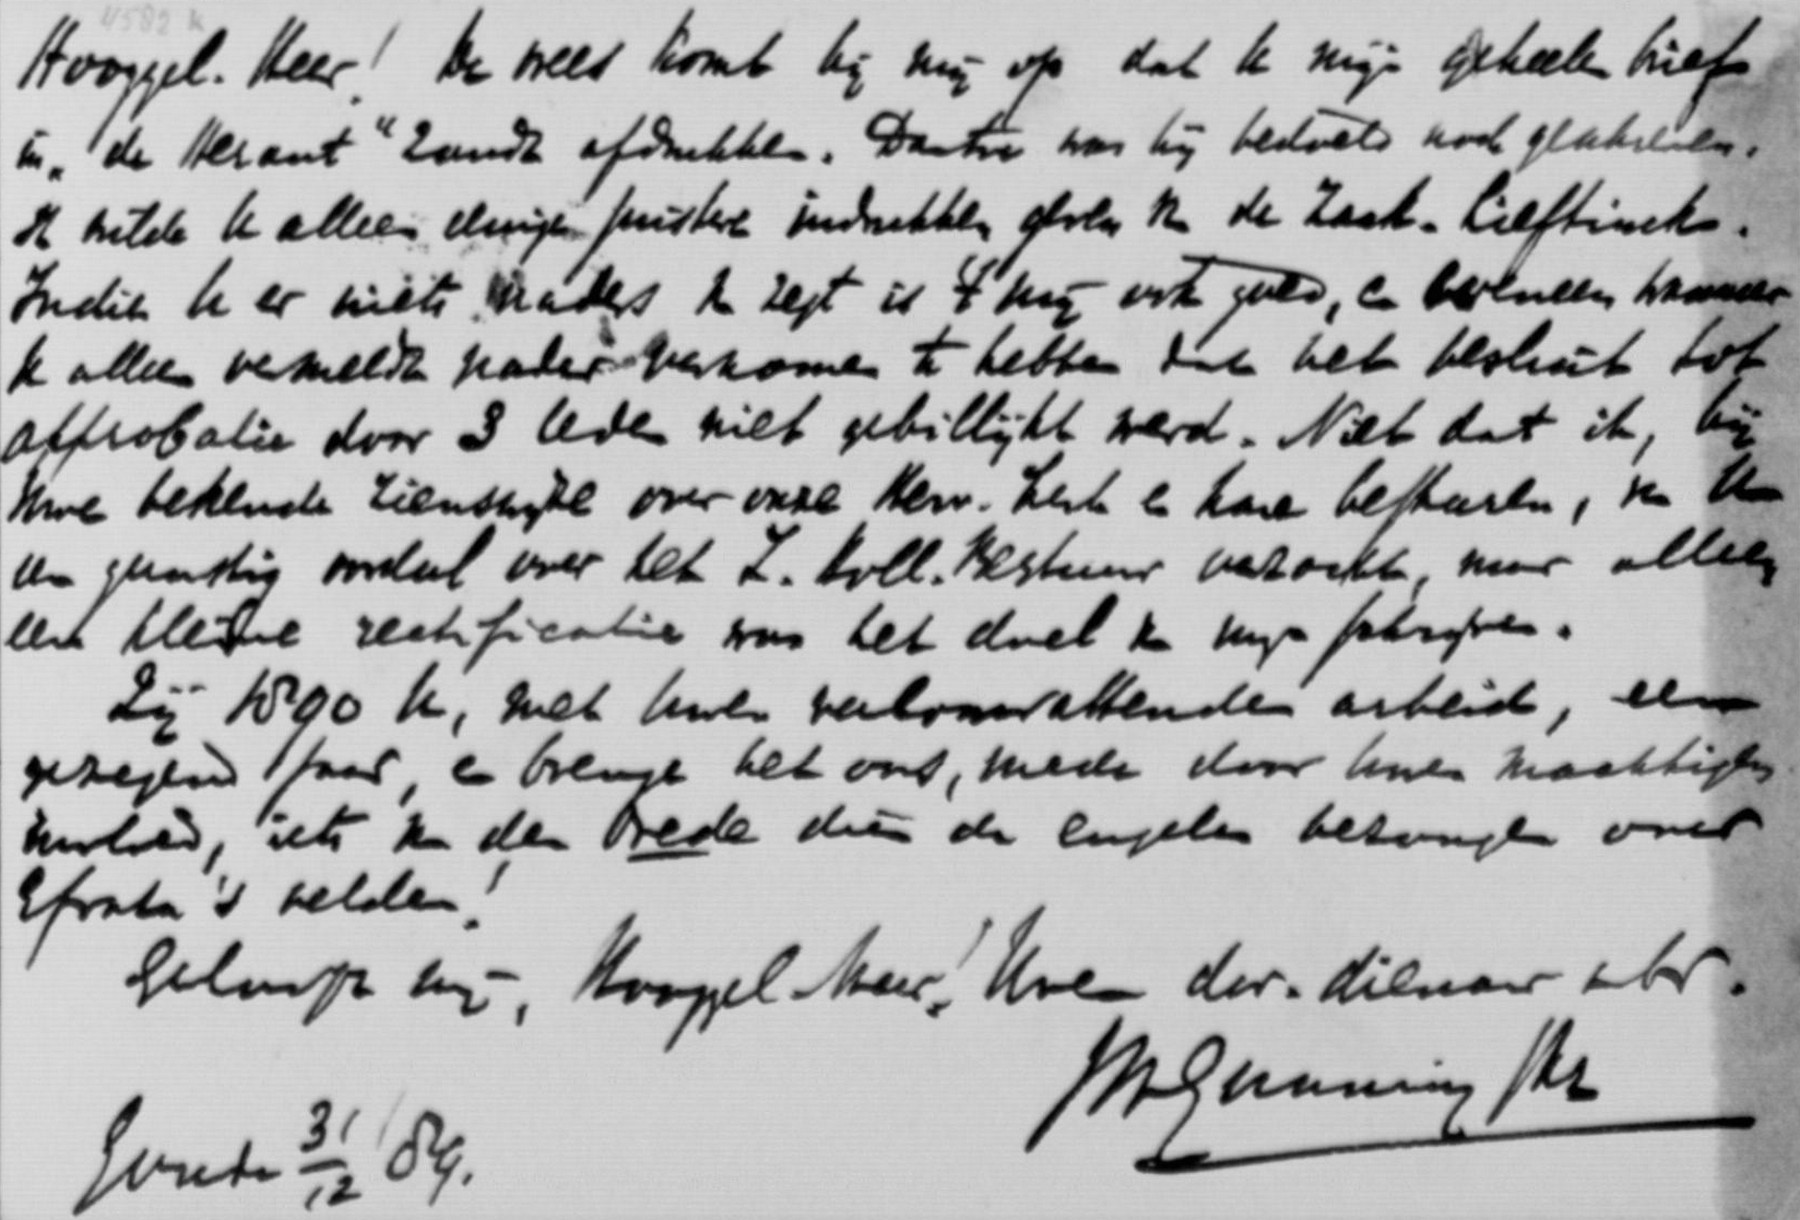 Hooggel. Heer! De vrees komt bij mij op dat U mijn geheelen brief
in "de Heraut" zoudt afdrukken. Daartoe was hij bedoeld noch geschreven.
Ik wilde U alleen eenige juistere indrukken geven van de zaak-Lieftinck.
Indien U er niets nader van zegt is 't mij ook goed, en bovendien wanneer
U alleen vermeldt nader vernomen te hebben dat het besluit tot
approbatie door 3 leden niet gebillijkt werd. Niet dat ik, bij
Uwe bekende zienswijze over onze Herv. Kerk en hare besturen, van U
een gunstig oordeel over het Z. Holl. Kerkbestuur verzocht, maar alleen
een kleine rectificatie was het doel van mijn schrijven.
Zij 1890 U, met Uwen veelomvattenden arbeid, een
gezegend jaar, en brenge het ons, mede door Uwen machtigen
invloed, iets van den vrede dien de engelen bezongen over
Efrata's velden!
Geloof mij, Hooggel. Heer! Uwen dw. dienaar en br.
JH Gunning JHz
Gouda 31/12 89.